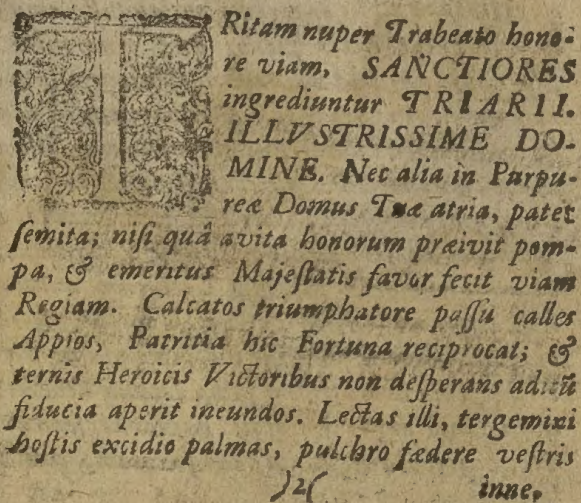 TRitam nuper Trabeato hono-
re viam, SANCTIORES
ingrediuntur TRIARII.
ILLVSTRISSIME DO-
MINE. Nec alia in Purpu-
reæ Domus Tuæ atria, patet
ſemita; niſi quâ avita honorum præivit pom-
pa, & emeritus Majeſtatis favor fecit viam
Regiam. Calcatos triumphatore paſſu calles
Appios, Patritia hic Fortuna reciprocat; &
ternis Heroicis Victoribus non deſperans aditũ
fiducia aperit ineundos. Lectas illi, tergemini
hoſtis excidio palmas, pulchro fædere veſtris
)2( inne,